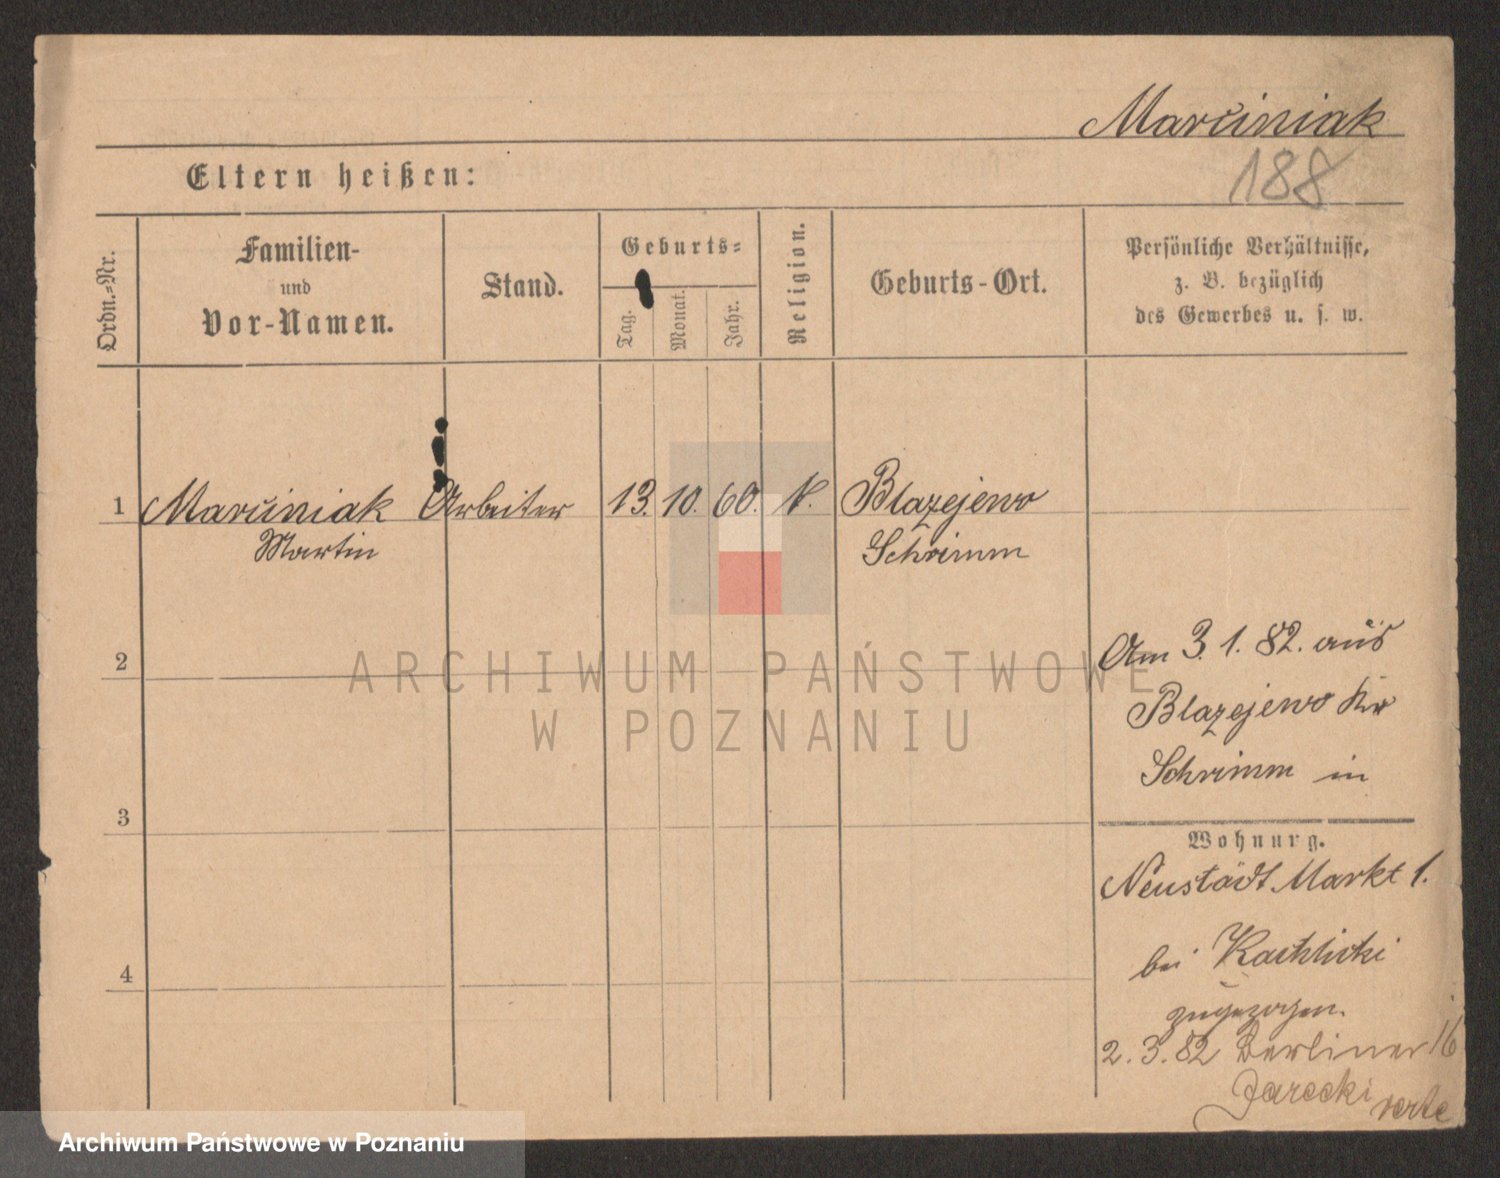 Marciniak
188
Eltern heißen:
Ordn.-Nr.
Familien-
und
Vor-Namen.
Stand.
Geburts-
Tag.
Monat.
Jahr.
Religion.
Geburts-Ort.
Persönliche Verhältnisse,
z. B. bezüglich
des Gewerbes u. s. w.
1 Marciniak Arbeiter 13. 10. 60. k. Blazejewo
Martin Schrimm
2
3
4
Am 3. 1. 82. aus
Blazejewo Kr
Schrimm in
Wohnung.
Neustädt. Markt 1.
bei Kachlicki
zugezogen.
2. 3. 82 Berliner 16
Jarecki verte
ARCHIWUM PAŃSTWOWE
W POZNANIU
Archiwum Państwowe w Poznaniu